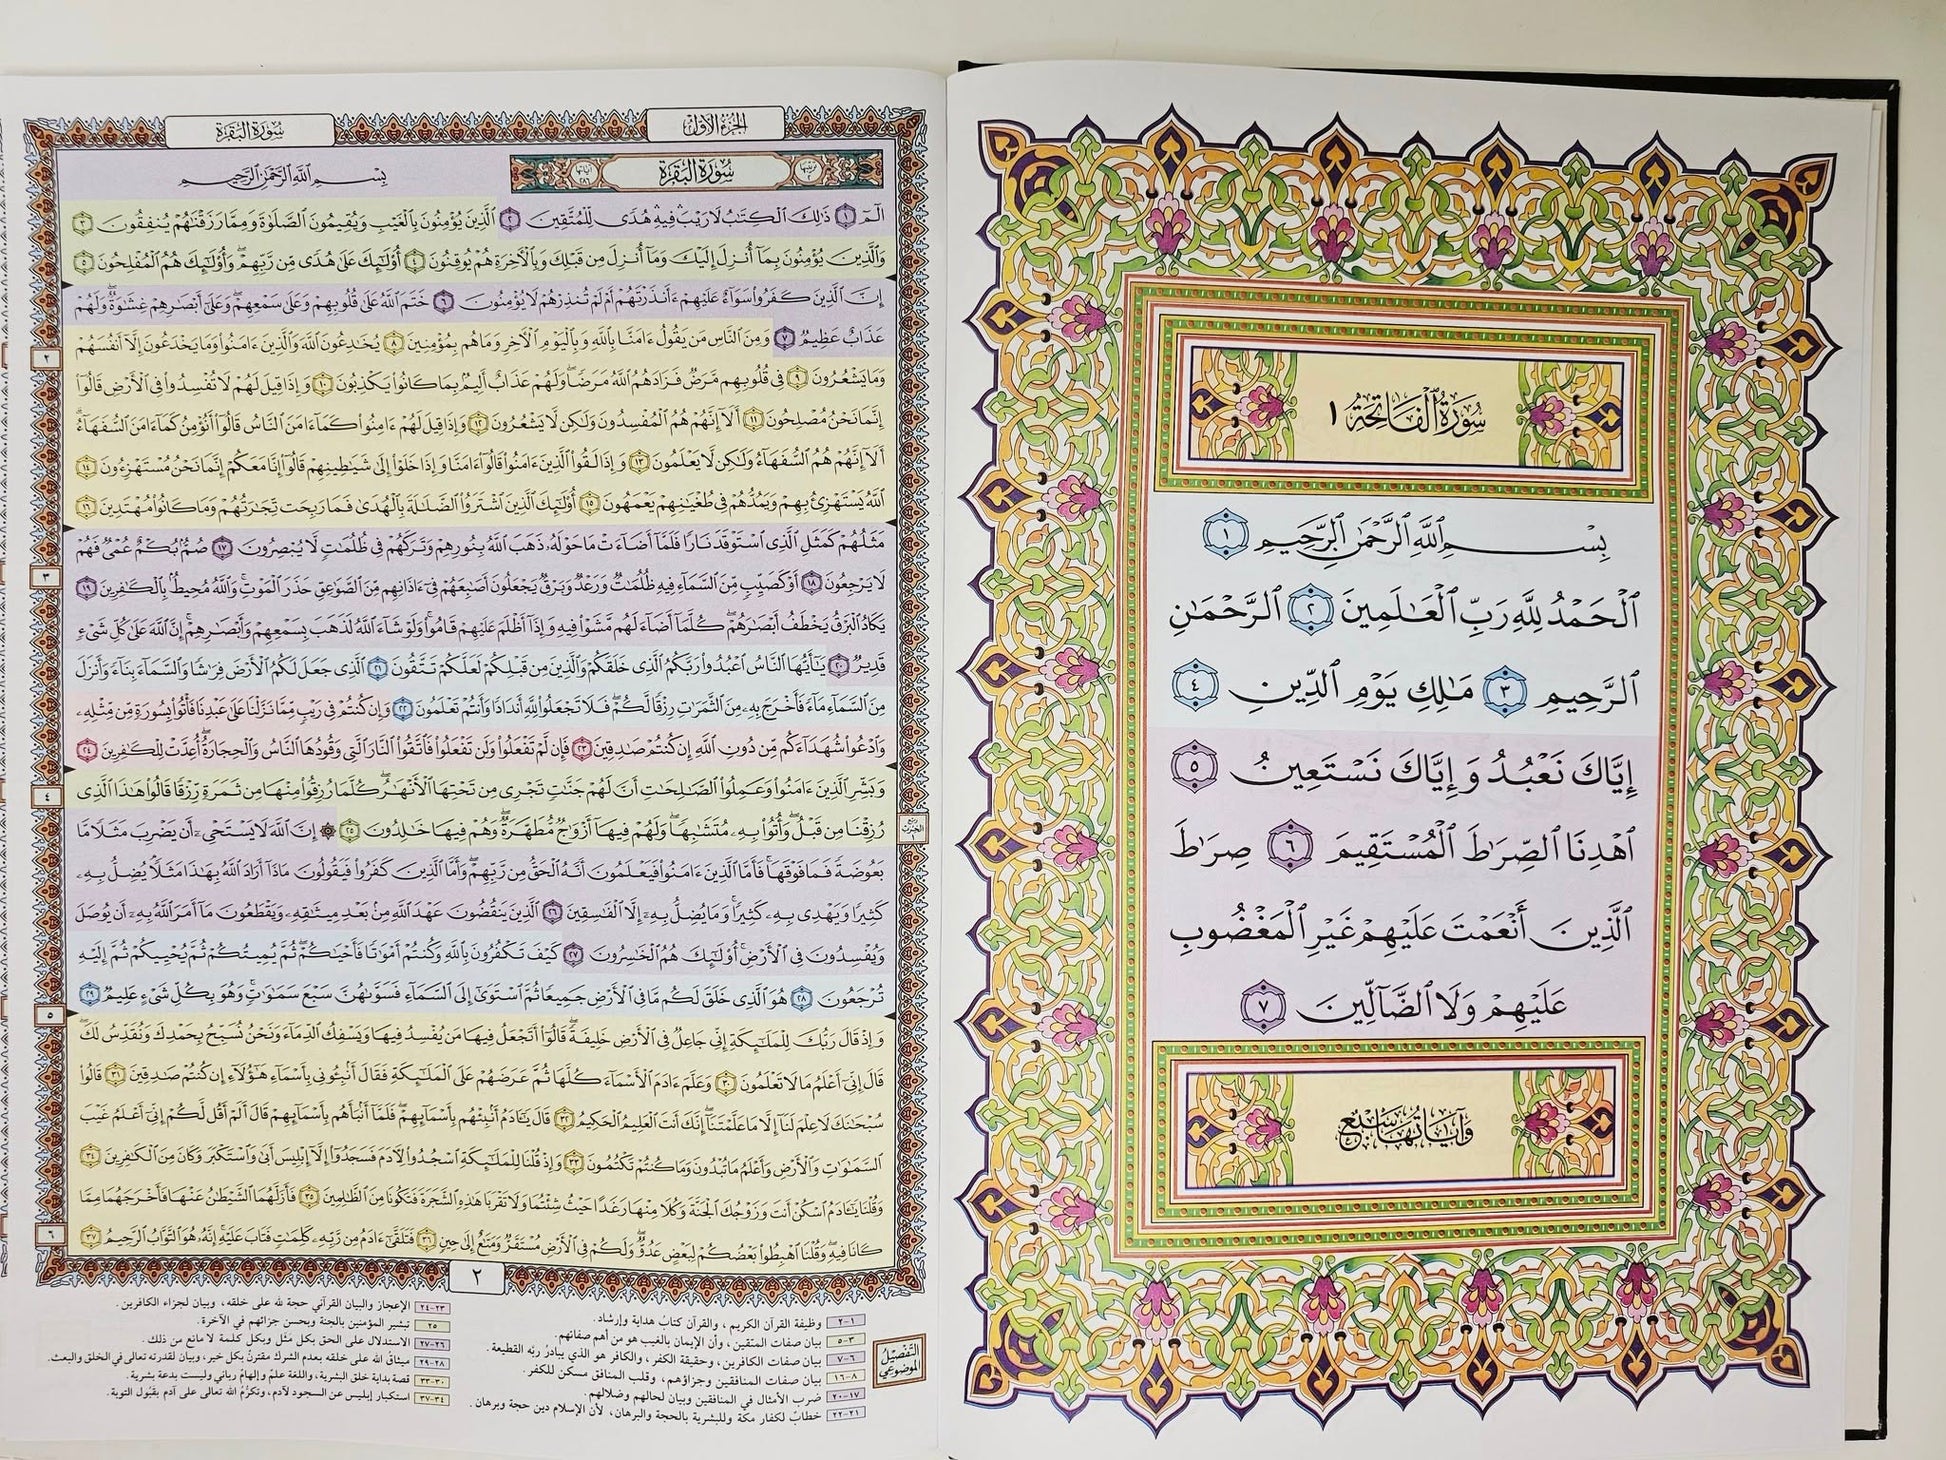 سُورَةُ الْفَاتِحَةِ ١
بِسْمِ اللَّهِ الرَّحْمَٰنِ الرَّحِيمِ ١
الْحَمْدُ لِلَّهِ رَبِّ الْعَالَمِينَ ٢ الرَّحْمَٰنِ
الرَّحِيمِ ٣ مَالِكِ يَوْمِ الدِّينِ ٤
إِيَّاكَ نَعْبُدُ وَإِيَّاكَ نَسْتَعِينُ ٥
اهْدِنَا الصِّرَاطَ الْمُسْتَقِيمَ ٦ صِرَاطَ
الَّذِينَ أَنْعَمْتَ عَلَيْهِمْ غَيْرِ الْمَغْضُوبِ
عَلَيْهِمْ وَلَا الضَّالِّينَ ٧
وَآيَاتُهَا سَبْعٌ
الجزء الأول
سورة البقرة
ترتيبها ٢ سورة البقرة آياتها ٢٨٦
بسم الله الرحمن الرحيم
الٓمٓ ١ ذَٰلِكَ الْكِتَابُ لَا رَيْبَ فِيهِ هُدًى لِّلْمُتَّقِينَ ٢ الَّذِينَ يُؤْمِنُونَ بِالْغَيْبِ وَيُقِيمُونَ الصَّلَاةَ وَمِمَّا رَزَقْنَاهُمْ يُنفِقُونَ ٣
وَالَّذِينَ يُؤْمِنُونَ بِمَا أُنزِلَ إِلَيْكَ وَمَا أُنزِلَ مِن قَبْلِكَ وَبِالْآخِرَةِ هُمْ يُوقِنُونَ ٤ أُولَٰئِكَ عَلَىٰ هُدًى مِّن رَّبِّهِمْ وَأُولَٰئِكَ هُمُ الْمُفْلِحُونَ ٥
إِنَّ الَّذِينَ كَفَرُوا سَوَاءٌ عَلَيْهِمْ ءَأَنذَرْتَهُمْ أَمْ لَمْ تُنذِرْهُمْ لَا يُؤْمِنُونَ ٦ خَتَمَ اللَّهُ عَلَىٰ قُلُوبِهِمْ وَعَلَىٰ سَمْعِهِمْ وَعَلَىٰ أَبْصَارِهِمْ غِشَاوَةٌ وَلَهُمْ
عَذَابٌ عَظِيمٌ ٧ وَمِنَ النَّاسِ مَن يَقُولُ ءَامَنَّا بِاللَّهِ وَبِالْيَوْمِ الْآخِرِ وَمَا هُم بِمُؤْمِنِينَ ٨ يُخَادِعُونَ اللَّهَ وَالَّذِينَ ءَامَنُوا وَمَا يَخْدَعُونَ إِلَّا أَنفُسَهُمْ
٢
وَمَا يَشْعُرُونَ ٩ فِي قُلُوبِهِم مَّرَضٌ فَزَادَهُمُ اللَّهُ مَرَضًا وَلَهُمْ عَذَابٌ أَلِيمٌ بِمَا كَانُوا يَكْذِبُونَ ١٠ وَإِذَا قِيلَ لَهُمْ لَا تُفْسِدُوا فِي الْأَرْضِ قَالُوا
إِنَّمَا نَحْنُ مُصْلِحُونَ ١١ أَلَا إِنَّهُمْ هُمُ الْمُفْسِدُونَ وَلَٰكِن لَّا يَشْعُرُونَ ١٢ وَإِذَا قِيلَ لَهُمْ ءَامِنُوا كَمَا ءَامَنَ النَّاسُ قَالُوا أَنُؤْمِنُ كَمَا ءَامَنَ السُّفَهَاءُ
أَلَا إِنَّهُمْ هُمُ السُّفَهَاءُ وَلَٰكِن لَّا يَعْلَمُونَ ١٣ وَإِذَا لَقُوا الَّذِينَ ءَامَنُوا قَالُوا ءَامَنَّا وَإِذَا خَلَوْا إِلَىٰ شَيَاطِينِهِمْ قَالُوا إِنَّا مَعَكُمْ إِنَّمَا نَحْنُ مُسْتَهْزِءُونَ ١٤
اللَّهُ يَسْتَهْزِئُ بِهِمْ وَيَمُدُّهُمْ فِي طُغْيَانِهِمْ يَعْمَهُونَ ١٥ أُولَٰئِكَ الَّذِينَ اشْتَرَوُا الضَّلَالَةَ بِالْهُدَىٰ فَمَا رَبِحَت تِّجَارَتُهُمْ وَمَا كَانُوا مُهْتَدِينَ ١٦
مَثَلُهُمْ كَمَثَلِ الَّذِي اسْتَوْقَدَ نَارًا فَلَمَّا أَضَاءَتْ مَا حَوْلَهُ ذَهَبَ اللَّهُ بِنُورِهِمْ وَتَرَكَهُمْ فِي ظُلُمَاتٍ لَّا يُبْصِرُونَ ١٧ صُمٌّ بُكْمٌ عُمْيٌ فَهُمْ
لَا يَرْجِعُونَ ١٨ أَوْ كَصَيِّبٍ مِّنَ السَّمَاءِ فِيهِ ظُلُمَاتٌ وَرَعْدٌ وَبَرْقٌ يَجْعَلُونَ أَصَابِعَهُمْ فِي ءَاذَانِهِم مِّنَ الصَّوَاعِقِ حَذَرَ الْمَوْتِ وَاللَّهُ مُحِيطٌ بِالْكَافِرِينَ ١٩
٣
يَكَادُ الْبَرْقُ يَخْطَفُ أَبْصَارَهُمْ كُلَّمَا أَضَاءَ لَهُم مَّشَوْا فِيهِ وَإِذَا أَظْلَمَ عَلَيْهِمْ قَامُوا وَلَوْ شَاءَ اللَّهُ لَذَهَبَ بِسَمْعِهِمْ وَأَبْصَارِهِمْ إِنَّ اللَّهَ عَلَىٰ كُلِّ شَيْءٍ
قَدِيرٌ ٢٠ يَا أَيُّهَا النَّاسُ اعْبُدُوا رَبَّكُمُ الَّذِي خَلَقَكُمْ وَالَّذِينَ مِن قَبْلِكُمْ لَعَلَّكُمْ تَتَّقُونَ ٢١ الَّذِي جَعَلَ لَكُمُ الْأَرْضَ فِرَاشًا وَالسَّمَاءَ بِنَاءً وَأَنزَلَ
مِنَ السَّمَاءِ مَاءً فَأَخْرَجَ بِهِ مِنَ الثَّمَرَاتِ رِزْقًا لَّكُمْ فَلَا تَجْعَلُوا لِلَّهِ أَندَادًا وَأَنتُمْ تَعْلَمُونَ ٢٢ وَإِن كُنتُمْ فِي رَيْبٍ مِّمَّا نَزَّلْنَا عَلَىٰ عَبْدِنَا فَأْتُوا بِسُورَةٍ مِّن مِّثْلِهِ
وَادْعُوا شُهَدَاءَكُم مِّن دُونِ اللَّهِ إِن كُنتُمْ صَادِقِينَ ٢٣ فَإِن لَّمْ تَفْعَلُوا وَلَن تَفْعَلُوا فَاتَّقُوا النَّارَ الَّتِي وَقُودُهَا النَّاسُ وَالْحِجَارَةُ أُعِدَّتْ لِلْكَافِرِينَ ٢٤
وَبَشِّرِ الَّذِينَ ءَامَنُوا وَعَمِلُوا الصَّالِحَاتِ أَنَّ لَهُمْ جَنَّاتٍ تَجْرِي مِن تَحْتِهَا الْأَنْهَارُ كُلَّمَا رُزِقُوا مِنْهَا مِن ثَمَرَةٍ رِّزْقًا قَالُوا هَٰذَا الَّذِي
٤
رُزِقْنَا مِن قَبْلُ وَأُتُوا بِهِ مُتَشَابِهًا وَلَهُمْ فِيهَا أَزْوَاجٌ مُّطَهَّرَةٌ وَهُمْ فِيهَا خَالِدُونَ ٢٥ ۞ إِنَّ اللَّهَ لَا يَسْتَحْيِي أَن يَضْرِبَ مَثَلًا مَّا
ربع الحزب
بَعُوضَةً فَمَا فَوْقَهَا فَأَمَّا الَّذِينَ ءَامَنُوا فَيَعْلَمُونَ أَنَّهُ الْحَقُّ مِن رَّبِّهِمْ وَأَمَّا الَّذِينَ كَفَرُوا فَيَقُولُونَ مَاذَا أَرَادَ اللَّهُ بِهَٰذَا مَثَلًا يُضِلُّ بِهِ
كَثِيرًا وَيَهْدِي بِهِ كَثِيرًا وَمَا يُضِلُّ بِهِ إِلَّا الْفَاسِقِينَ ٢٦ الَّذِينَ يَنقُضُونَ عَهْدَ اللَّهِ مِن بَعْدِ مِيثَاقِهِ وَيَقْطَعُونَ مَا أَمَرَ اللَّهُ بِهِ أَن يُوصَلَ
وَيُفْسِدُونَ فِي الْأَرْضِ أُولَٰئِكَ هُمُ الْخَاسِرُونَ ٢٧ كَيْفَ تَكْفُرُونَ بِاللَّهِ وَكُنتُمْ أَمْوَاتًا فَأَحْيَاكُمْ ثُمَّ يُمِيتُكُمْ ثُمَّ يُحْيِيكُمْ ثُمَّ إِلَيْهِ
تُرْجَعُونَ ٢٨ هُوَ الَّذِي خَلَقَ لَكُم مَّا فِي الْأَرْضِ جَمِيعًا ثُمَّ اسْتَوَىٰ إِلَى السَّمَاءِ فَسَوَّاهُنَّ سَبْعَ سَمَاوَاتٍ وَهُوَ بِكُلِّ شَيْءٍ عَلِيمٌ ٢٩
٥
وَإِذْ قَالَ رَبُّكَ لِلْمَلَائِكَةِ إِنِّي جَاعِلٌ فِي الْأَرْضِ خَلِيفَةً قَالُوا أَتَجْعَلُ فِيهَا مَن يُفْسِدُ فِيهَا وَيَسْفِكُ الدِّمَاءَ وَنَحْنُ نُسَبِّحُ بِحَمْدِكَ وَنُقَدِّسُ لَكَ
قَالَ إِنِّي أَعْلَمُ مَا لَا تَعْلَمُونَ ٣٠ وَعَلَّمَ ءَادَمَ الْأَسْمَاءَ كُلَّهَا ثُمَّ عَرَضَهُمْ عَلَى الْمَلَائِكَةِ فَقَالَ أَنبِئُونِي بِأَسْمَاءِ هَٰؤُلَاءِ إِن كُنتُمْ صَادِقِينَ ٣١ قَالُوا
سُبْحَانَكَ لَا عِلْمَ لَنَا إِلَّا مَا عَلَّمْتَنَا إِنَّكَ أَنتَ الْعَلِيمُ الْحَكِيمُ ٣٢ قَالَ يَا آدَمُ أَنبِئْهُم بِأَسْمَائِهِمْ فَلَمَّا أَنبَأَهُم بِأَسْمَائِهِمْ قَالَ أَلَمْ أَقُل لَّكُمْ إِنِّي أَعْلَمُ غَيْبَ
السَّمَاوَاتِ وَالْأَرْضِ وَأَعْلَمُ مَا تُبْدُونَ وَمَا كُنتُمْ تَكْتُمُونَ ٣٣ وَإِذْ قُلْنَا لِلْمَلَائِكَةِ اسْجُدُوا لِآدَمَ فَسَجَدُوا إِلَّا إِبْلِيسَ أَبَىٰ وَاسْتَكْبَرَ وَكَانَ مِنَ الْكَافِرِينَ ٣٤
وَقُلْنَا يَا آدَمُ اسْكُنْ أَنتَ وَزَوْجُكَ الْجَنَّةَ وَكُلَا مِنْهَا رَغَدًا حَيْثُ شِئْتُمَا وَلَا تَقْرَبَا هَٰذِهِ الشَّجَرَةَ فَتَكُونَا مِنَ الظَّالِمِينَ ٣٥ فَأَزَلَّهُمَا الشَّيْطَانُ عَنْهَا فَأَخْرَجَهُمَا مِمَّا
٦
كَانَا فِيهِ وَقُلْنَا اهْبِطُوا بَعْضُكُمْ لِبَعْضٍ عَدُوٌّ وَلَكُمْ فِي الْأَرْضِ مُسْتَقَرٌّ وَمَتَاعٌ إِلَىٰ حِينٍ ٣٦ فَتَلَقَّىٰ ءَادَمُ مِن رَّبِّهِ كَلِمَاتٍ فَتَابَ عَلَيْهِ إِنَّهُ هُوَ التَّوَّابُ الرَّحِيمُ ٣٧
٢
التفصيل الموضوعي
١-٢ وظيفة القرآن الكريم، والقرآن كتاب هداية وإرشاد.
٣-٥ بيان صفات المتقين، وأن الإيمان بالغيب هو من أهم صفاتهم.
٦-٧ بيان صفات الكافرين، وحقيقة الكفر، والكافر هو الذي يبادر ربه القطيعة.
٨-١٦ بيان صفات المنافقين وجزاؤهم، وقلب المنافق مسكن للكفر.
١٧-٢٠ ضرب الأمثال في المنافقين وبيان لحالهم وضلالهم.
٢١-٢٢ خطاب لكفار مكة وللبشرية بالحجة والبرهان، لأن الإسلام دين حجة وبرهان.
٢٣-٢٤ الإعجاز والبيان القرآني حجة لله على خلقه، وبيان لجزاء الكافرين.
٢٥ تبشير المؤمنين بالجنة وبحسن جزائهم في الآخرة.
٢٦-٢٧ الاستدلال على الحق بكل مثل وبكل كلمة لا مانع من ذلك.
٢٨-٢٩ ميثاق الله على خلقه بعدم الشرك مقترن بكل خير، وبيان لقدرته تعالى في الخلق والبعث.
٣٠-٣٣ قصة بداية خلق البشرية، واللغة علم وإلهام رباني وليست بدعة بشرية.
٣٤-٣٧ استكبار إبليس عن السجود لآدم، وتكرم الله تعالى على آدم بقبول التوبة.